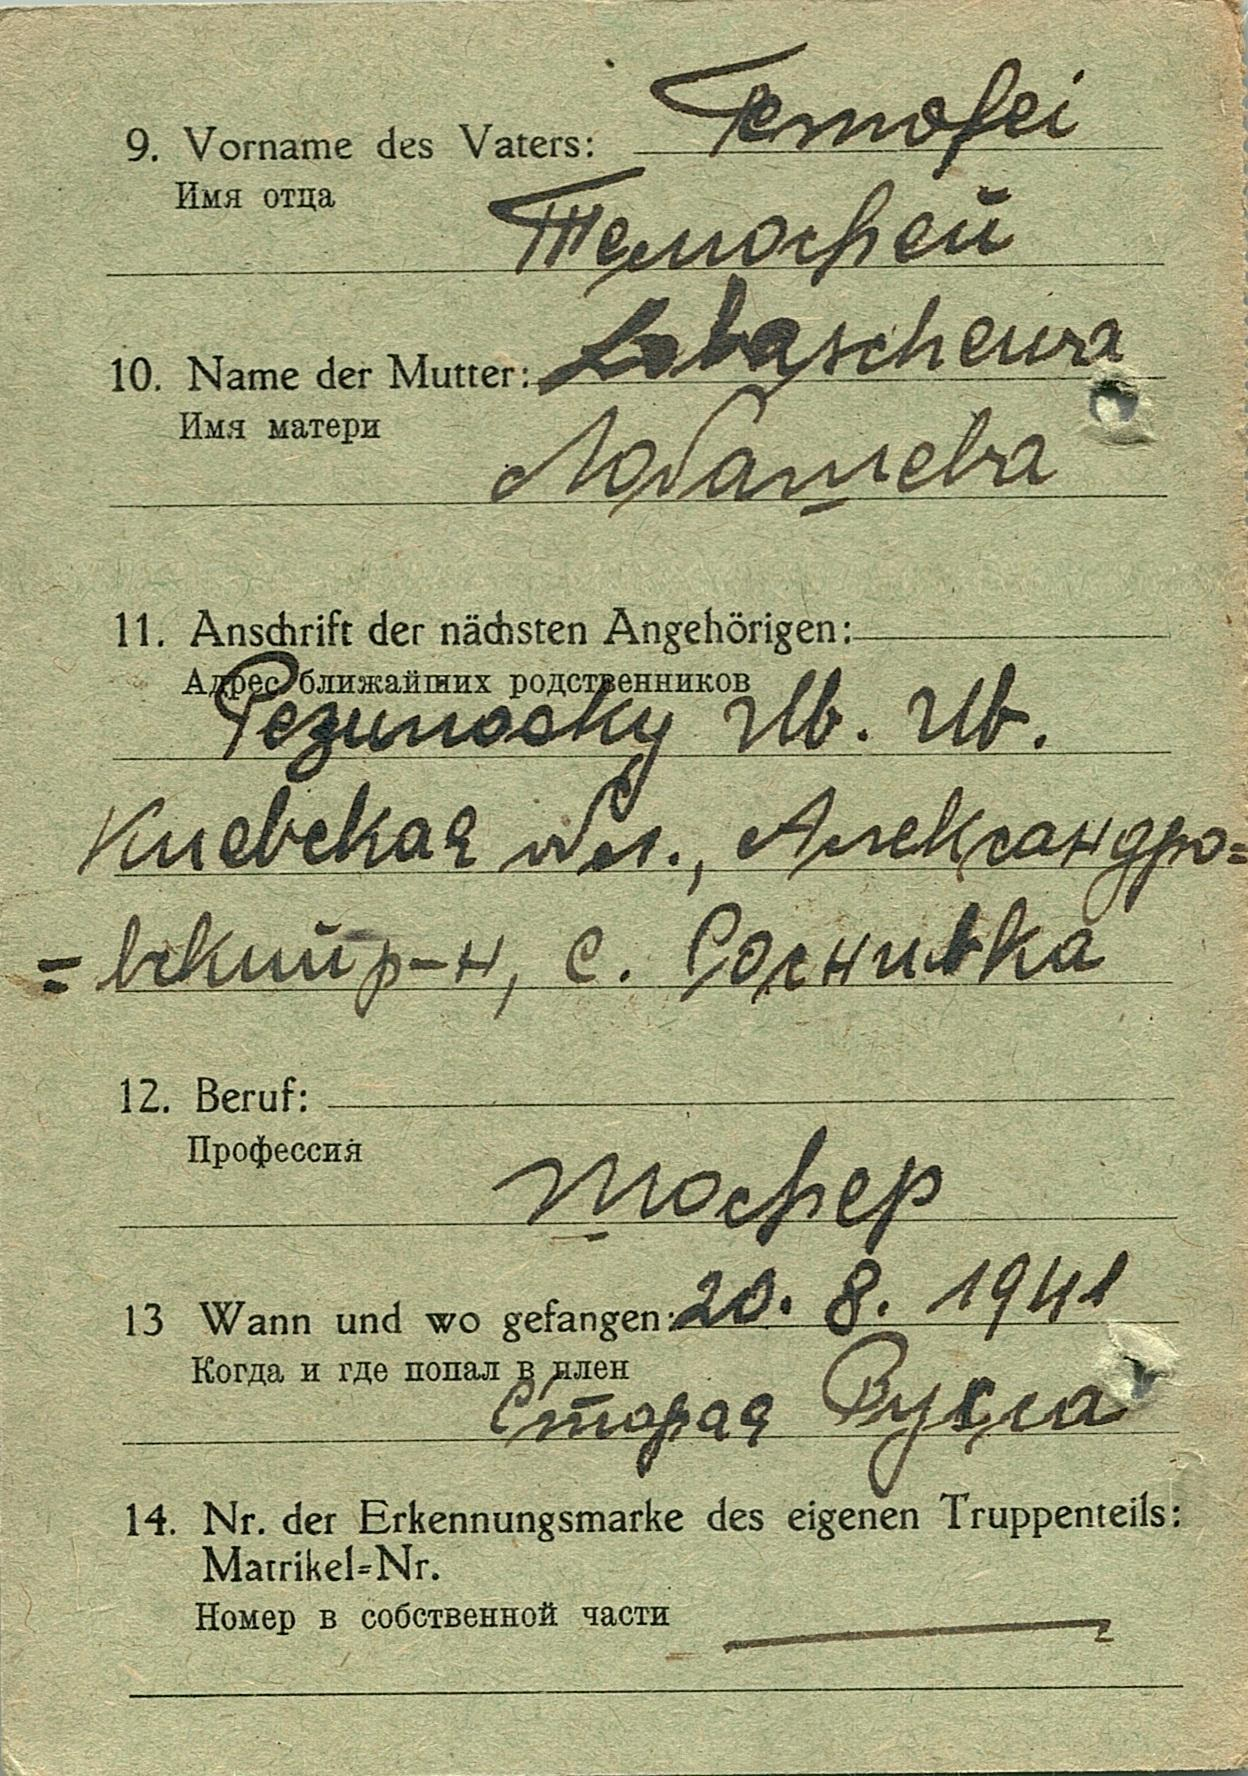 9. Vorname des Vaters: Temofei
Имя отца
Темофей
10. Name der Mutter: Lobaschewa
Имя матери
Лобашева
11. Anschrift der nächsten Angehörigen:
Адрес ближайших родственников
Ив. Ив.
Киевская обл., Александро=
=вский р-н, с. Соснивка
12. Beruf:
Профессия
шофер
13 Wann und wo gefangen: 20. 8. 1941
Когда и где попал в плен
Старая
14. Nr. der Erkennungsmarke des eigenen Truppenteils:
Matrikel=Nr.
Номер в собственной части